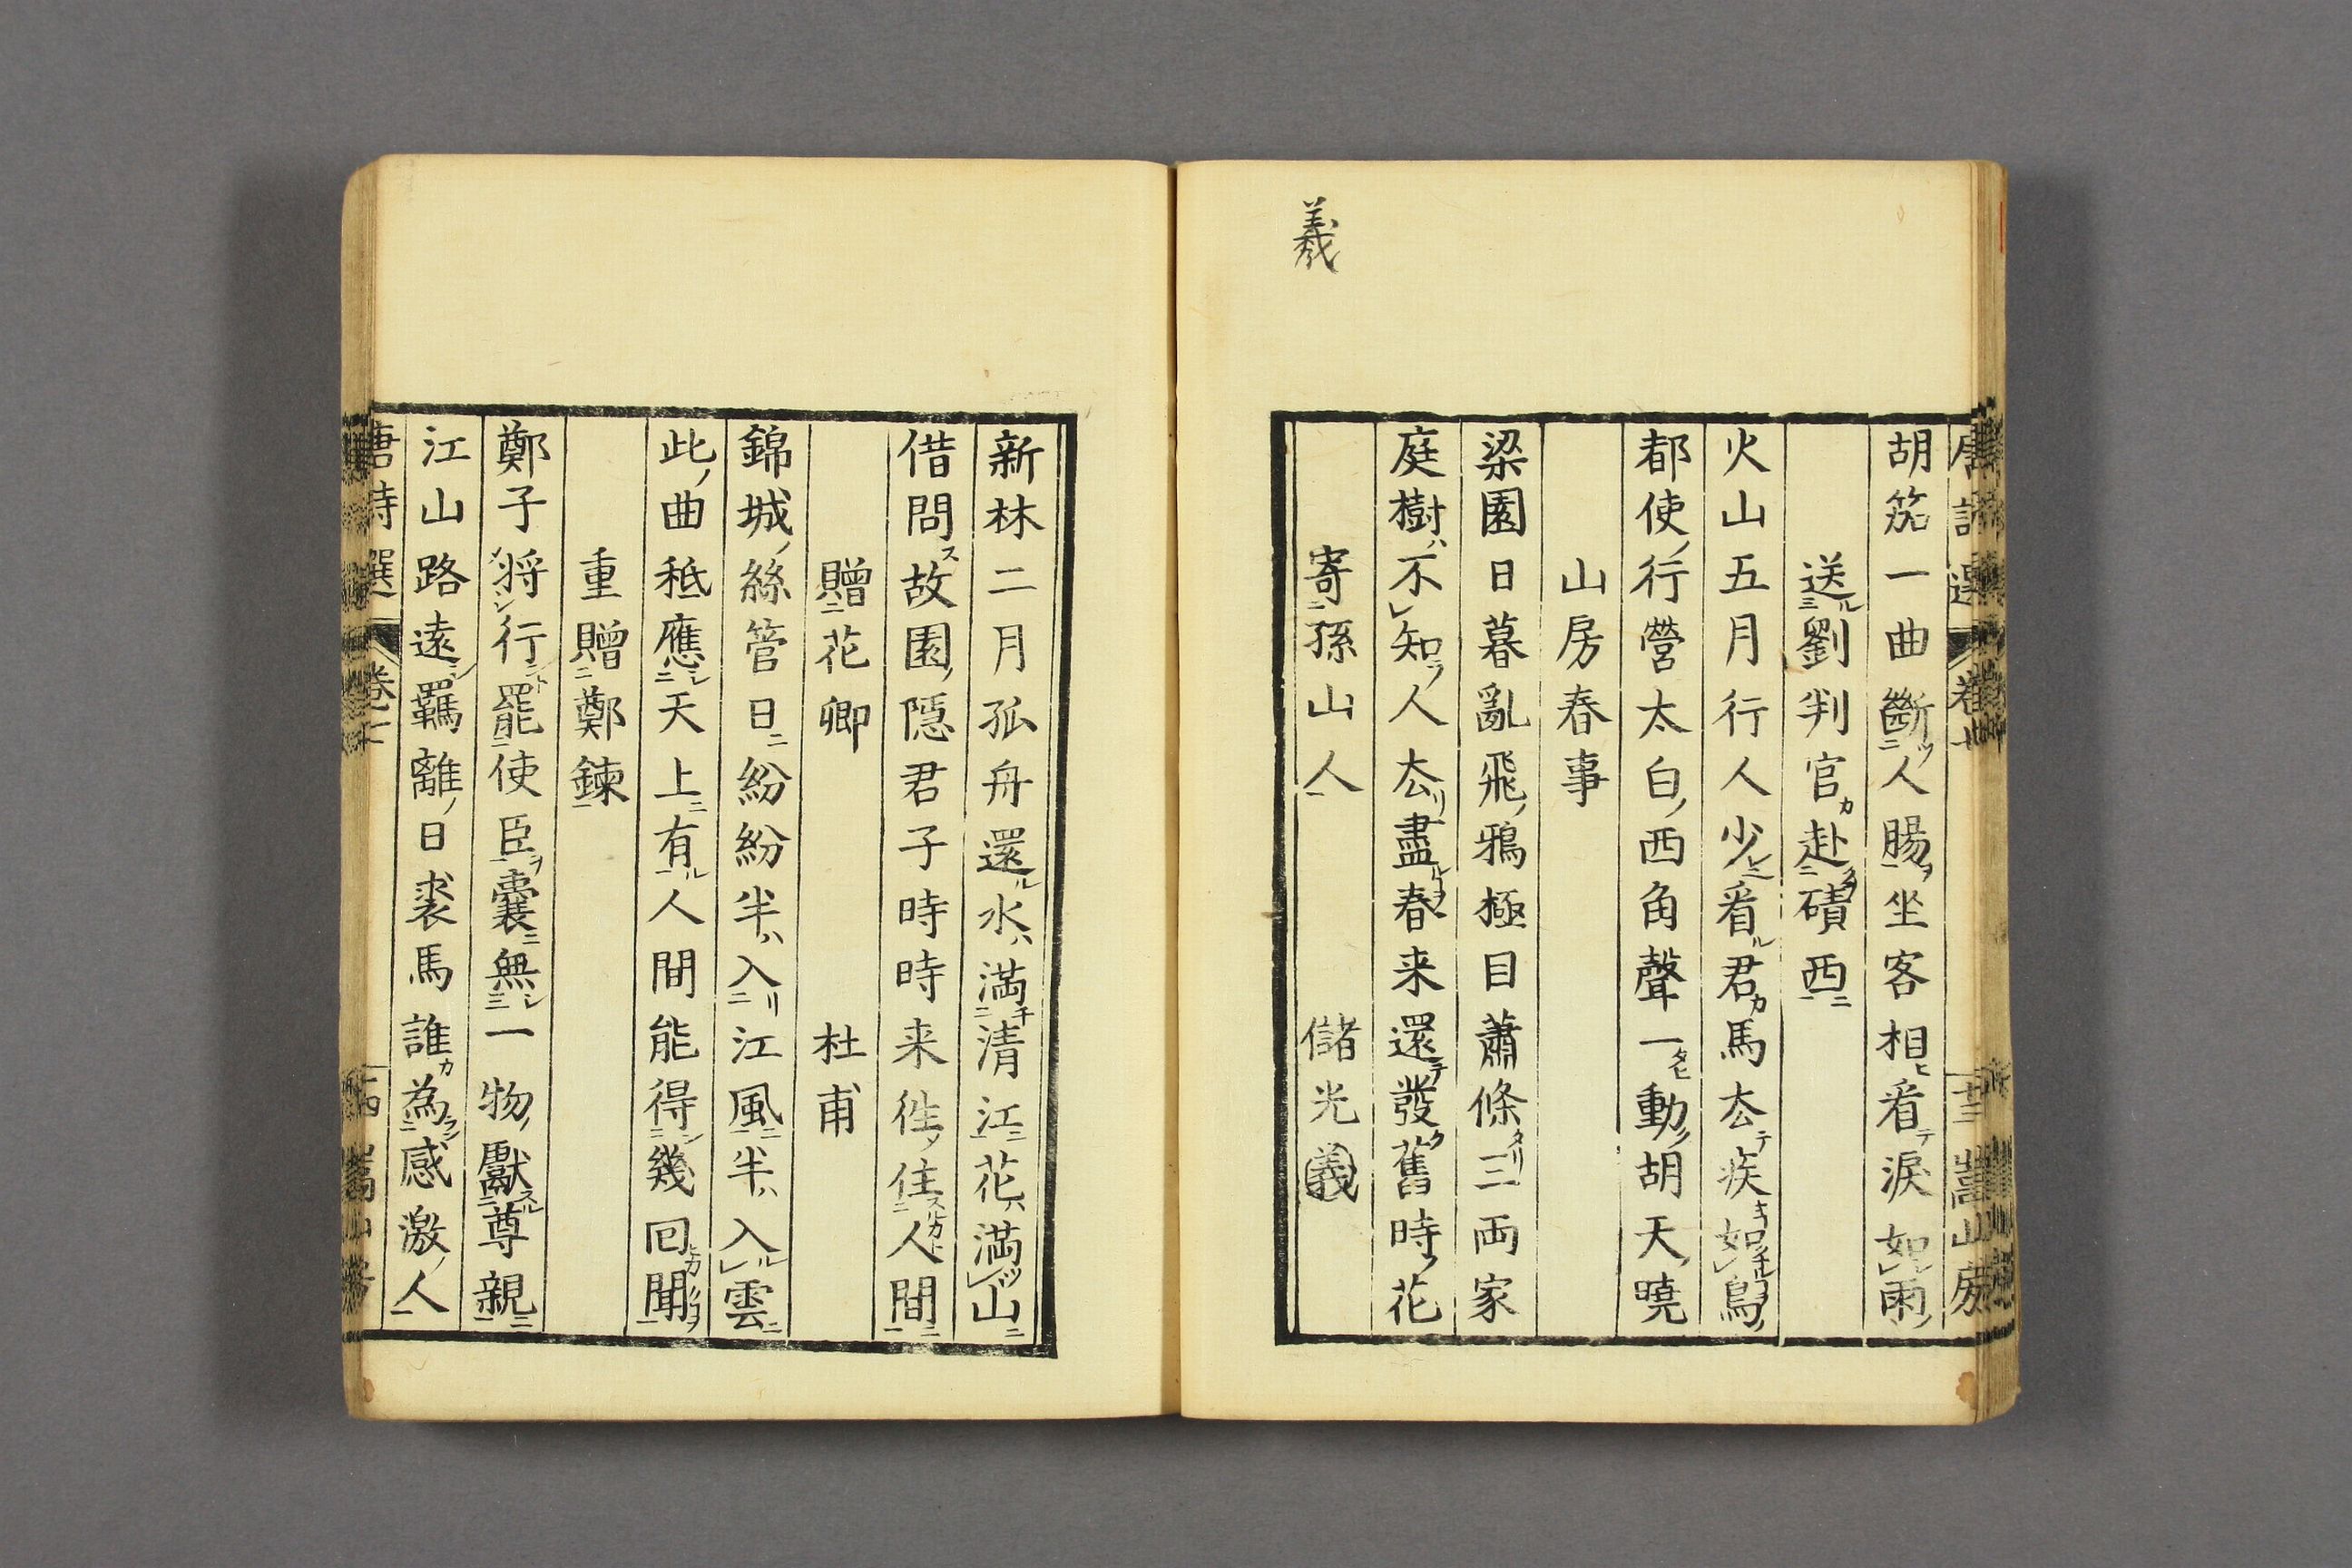 唐詩選 卷七 十三 嵩山房
胡笳一曲斷人腸坐客相看淚如雨
送劉判官赴磧西
火山五月行人少看君馬厺疾如鳥
都使行營太白西角聲一動胡天曉
山房春事
梁園日暮亂飛鴉極目蕭條三両家
庭樹不知人厺盡春来還發舊時花
寄孫山人 儲光義
羲
新林二月孤舟還水満清江花満山
借問故園隱君子時時来徃住人間
贈花卿 杜甫
錦城絲管日紛紛半入江風半入雲
此曲秪應天上有人間能得幾回聞
重贈鄭鍊
鄭子將行罷使臣囊無一物獻尊親
江山路遠羈離日裘馬誰為感激人
唐詩選 卷七 十四 嵩山房